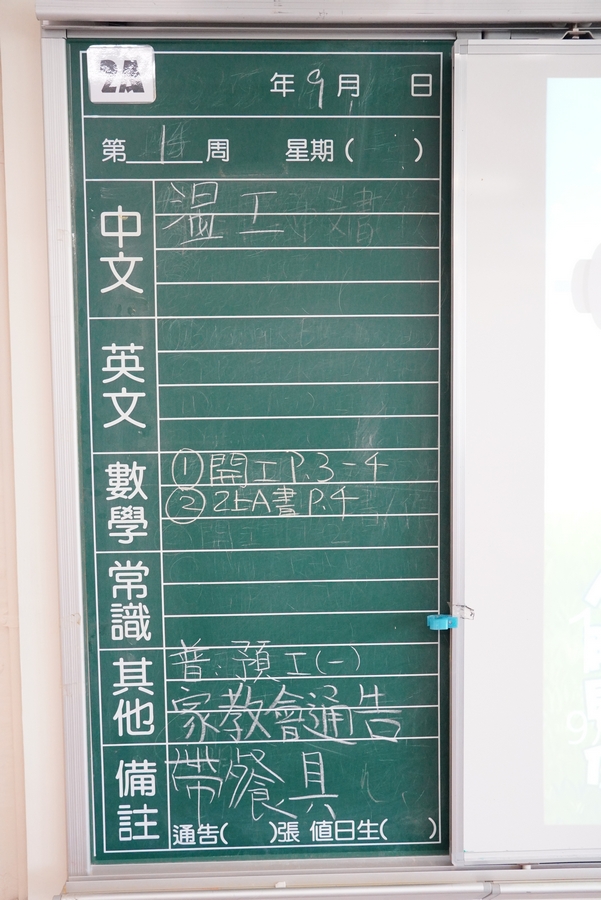 2A
年9月 日
第1周 星期( )
中文
溫工
英文
數學
①開工P.3-4
②2上A書P.4
常識
其他
普:預工(一)
家教會通告
備註
帶餐具
通告( )張 值日生( )